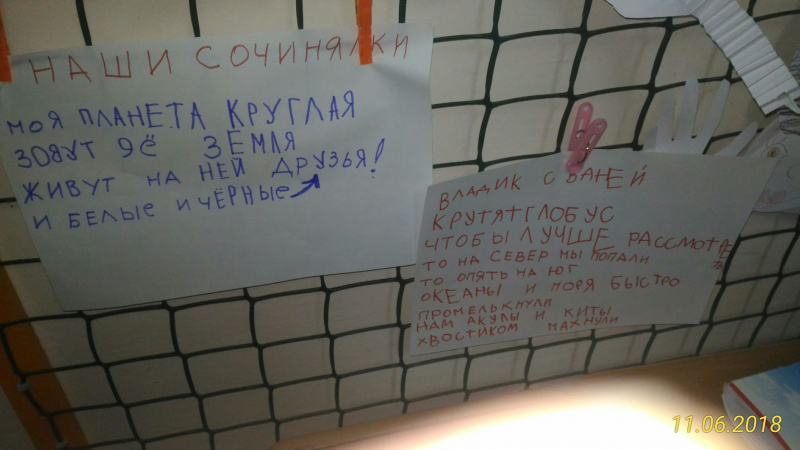 НАШИ СОЧИНЯЛКИ
МОЯ ПЛАНЕТА КРУГЛАЯ
ЗОВУТ ЯЁ ЗЕМЛЯ
ЖИВУТ НА НЕЙ ДРУЗЬЯ!
И БЕЛЫЕ И ЧЁРНЫЕ
ВЛАДИК С ВАНЕЙ
КРУТЯТ ГЛОБУС
ЧТОБЫ ЛУЧШЕ РАССМОТРЕ
ТЬ
ТО НА СЕВЕР МЫ ПОПАЛИ
ТО ОПЯТЬ НА ЮГ
ОКЕАНЫ И МОРЯ БЫСТРО
ПРОМЕЛЬКНУЛИ
НАМ АКУЛЫ И КИТЫ
ХВОСТИКОМ МАХНУЛИ
11.06.2018